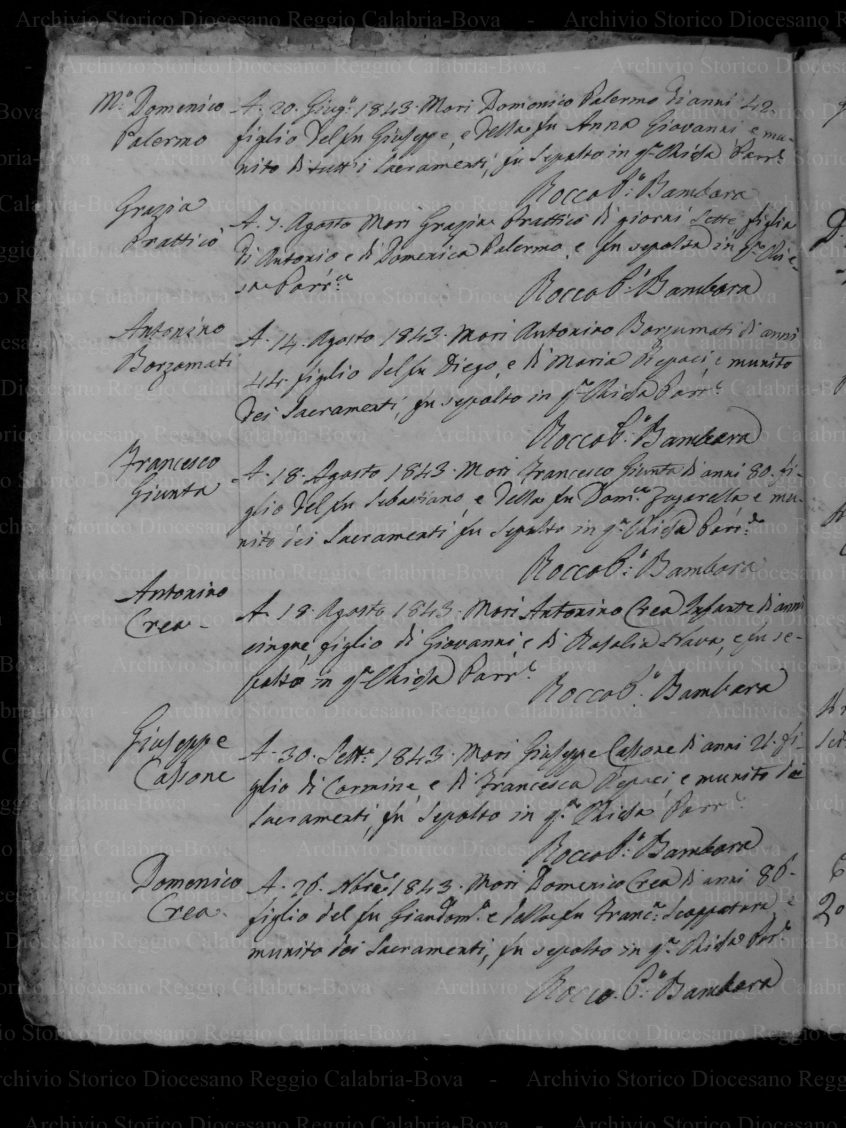 M.º Domenico
Palermo
A. 20. Giug.º 1843. Morì Domenico Palermo di anni 42.
figlio del fu Giuseppe, e della fu Anna Giovanni e mu-
nito di tutt'i Sacramenti, fu sepolto in q.ª Chiesa Parr.e
Rocco P.º Bambara
Grazia
Prattico
A. 7. Agosto Morì Grazia Prattico di giorni sette figlia
di Antonio e di Domenica Palermo, e fu sepolta in q.ª Chie-
sa Parr.le
Rocco P.º Bambara
Antonino
Borzomati
A. 14. Agosto 1843. Morì Antonino Borzumati di anni
44. figlio del fu Diego, e di Maria Repaci, e munito
dei Sacramenti, fu sepolto in q.ª Chiesa Parr.e
Rocco P.º Bambara
Francesco
Giunta
A. 18. Agosto 1843. Morì Francesco Giunta di anni 80. fi-
glio del fu Sebastiano, e della fu Dom.ca e mu-
nito dei Sacramenti fu sepolto in q.ª Chiesa Parr.e
Rocco P.º Bambara
Antonino
Crea -
A. 18. Agosto 1843. Morì Antonino Crea Infante di anni
cinque figlio di Giovanni e di Rosalia Nava, e fu se-
polto in q.ª Chiesa Parr.e
Rocco P.º Bambara
Giuseppe
Cassone
A. 30. Sett.e 1843. Morì Giuseppe Cassone di anni 21. fi-
glio di Carmine e di Francesca Repaci, e munito dei
Sacramenti, fu sepolto in q.ª Chiesa Parr.e
Rocco P.º Bambara
Domenico
Crea -
A. 26. 1843. Morì Domenico Crea di anni 86.
figlio del fu Giandom.º e della fu Franc.ª Scoppettara, e
munito dei Sacramenti, fu sepolto in q.ª Chiesa Parr.e
Rocco P.º Bambara
Archivio Storico Diocesano Reggio Calabria-Bova